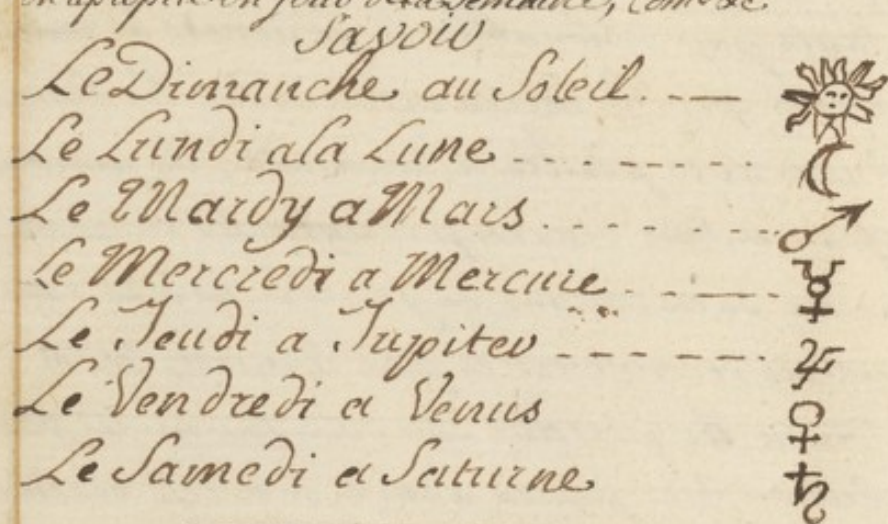 un jour de la Semaine, Comme
Savoir
Le Dimanche au Soleil
Le Lundi a la Lune
Le Mardy a Mars
Le Mercredi a Mercure
Le Jeudi a Jupiter
Le Vendredi a Venus
Le Samedi a Saturne